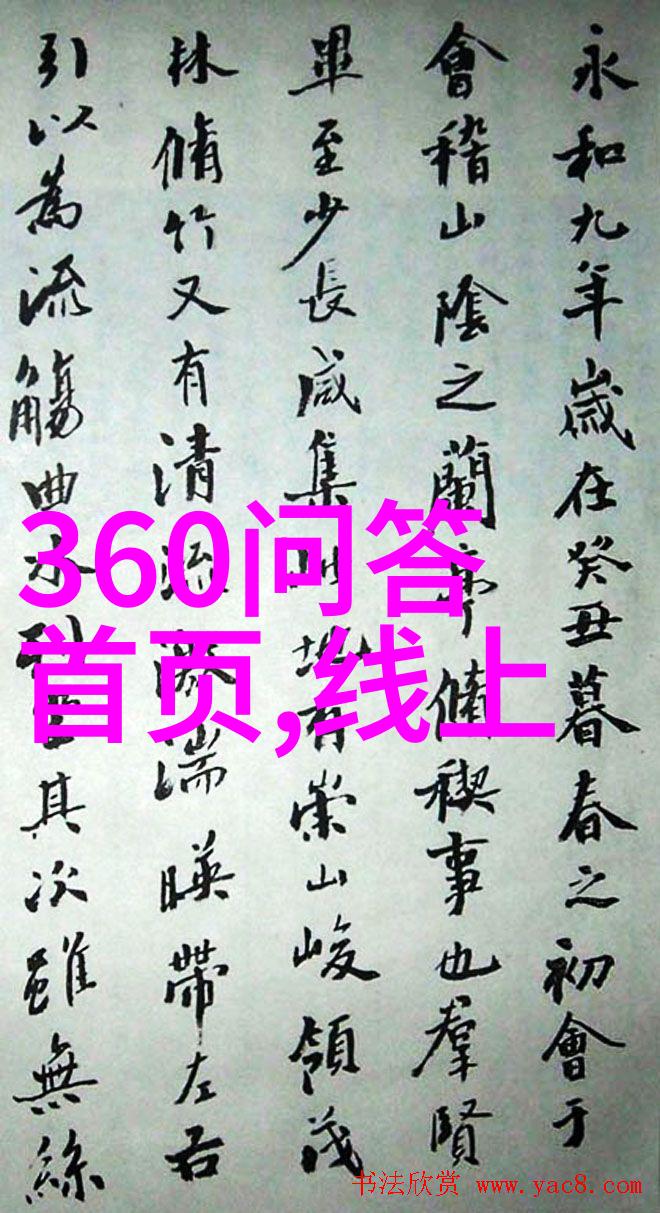 永和九年歲在癸丑暮春之初會于
會稽山陰之蘭亭脩稧事也羣賢
畢至少長咸集此地有崇山峻領茂
林脩竹又有清流激湍暎帶左右
引以為流觴曲水列坐其次雖無絲
360问答
首页,线上
书法欣赏 www.yac8.com